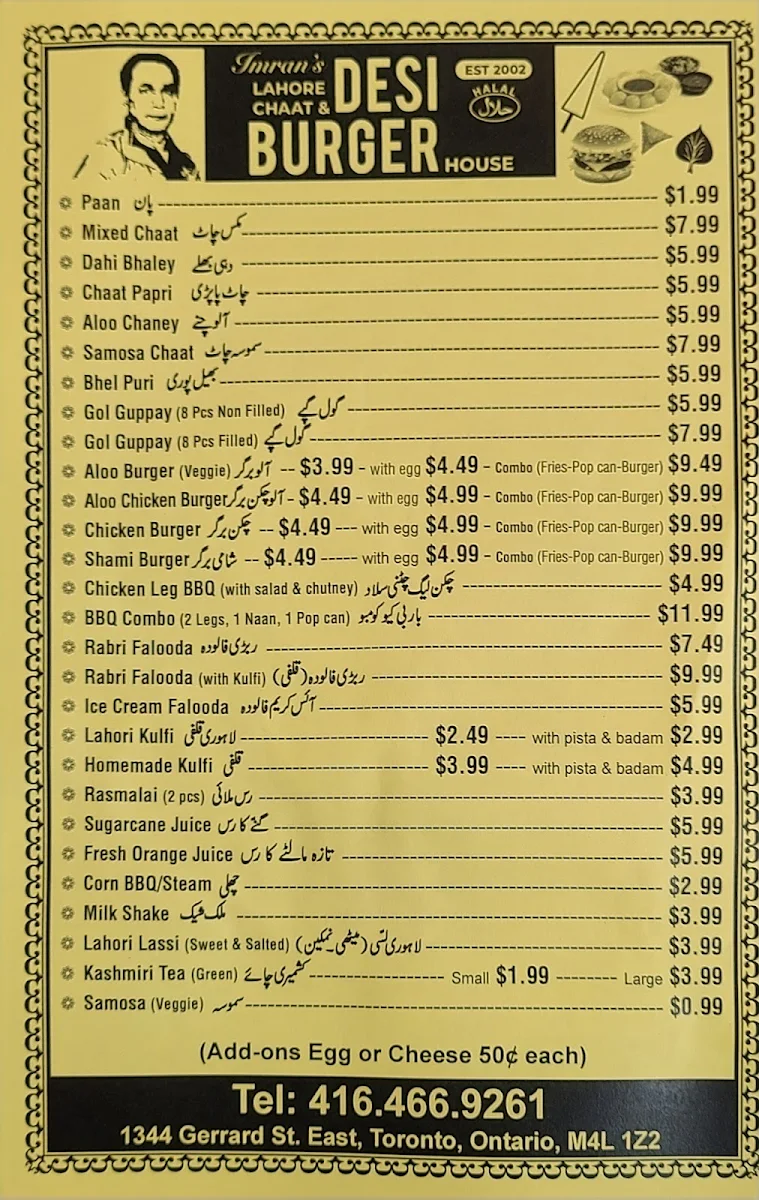 Imran's
LAHORE
CHAAT &
DESI
BURGER HOUSE
EST 2002
HALAL
حلال
Paan پان $1.99
Mixed Chaat مکس چاٹ $7.99
Dahi Bhaley دہی بھلے $5.99
Chaat Papri چاٹ پاپڑی $5.99
Aloo Chaney آلو چنے $5.99
Samosa Chaat سموسہ چاٹ $7.99
Bhel Puri بھیل پوری $5.99
Gol Guppay (8 Pcs Non Filled) گول گپے $5.99
Gol Guppay (8 Pcs Filled) گول گپے $7.99
Aloo Burger (Veggie) آلو برگر -- $3.99 - with egg $4.49 - Combo (Fries-Pop can-Burger) $9.49
Aloo Chicken Burger آلو چکن برگر - $4.49 - with egg $4.99 - Combo (Fries-Pop can-Burger) $9.99
Chicken Burger چکن برگر -- $4.49 --- with egg $4.99 - Combo (Fries-Pop can-Burger) $9.99
Shami Burger شامی برگر -- $4.49 ----- with egg $4.99 - Combo (Fries-Pop can-Burger) $9.99
Chicken Leg BBQ (with salad & chutney) چکن لیگ چٹنی سلاد $4.99
BBQ Combo (2 Legs, 1 Naan, 1 Pop can) بار بی کیو کومبو $11.99
Rabri Falooda ربڑی فالودہ $7.49
Rabri Falooda (with Kulfi) ربڑی فالودہ (قلفی) $9.99
Ice Cream Falooda آئس کریم فالودہ $5.99
Lahori Kulfi لاہوری قلفی $2.49 ---- with pista & badam $2.99
Homemade Kulfi قلفی $3.99 ---- with pista & badam $4.99
Rasmalai (2 pcs) رس ملائی $3.99
Sugarcane Juice گنے کا رس $5.99
Fresh Orange Juice تازہ مالٹے کا رس $5.99
Corn BBQ/Steam چھلی $2.99
Milk Shake ملک شیک $3.99
Lahori Lassi (Sweet & Salted) لاہوری لسی (میٹھی۔نمکین) $3.99
Kashmiri Tea (Green) کشمیری چائے Small $1.99 -------- Large $3.99
Samosa (Veggie) سموسہ $0.99
(Add-ons Egg or Cheese 50¢ each)
Tel: 416.466.9261
1344 Gerrard St. East, Toronto, Ontario, M4L 1Z2